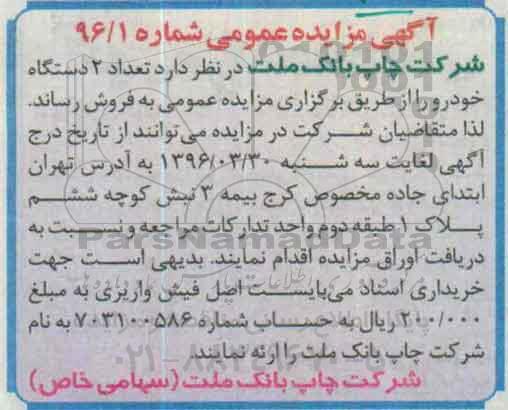 آگهی مزایده عمومی شماره ۹۶/۱
شرکت چاپ بانک ملت در نظر دارد تعداد ۲ دستگاه
خودرو را از طریق برگزاری مزایده عمومی به فروش رساند.
لذا متقاضیان شرکت در مزایده می‌توانند از تاریخ درج
آگهی لغایت سه شنبه ۱۳۹۶/۰۳/۳۰ به آدرس تهران
ابتدای جاده مخصوص کرج بیمه ۳ نبش کوچه ششم
پلاک ۱ طبقه دوم واحد تدارکات مراجعه و نسبت به
دریافت اوراق مزایده اقدام نمایند. بدیهی است جهت
خریداری اسناد می‌بایست اصل فیش واریزی به مبلغ
۲۱۰/۰۰۰ ریال به حساب شماره ۷۰۳۱۰۰۵۸۶ به نام
شرکت چاپ بانک ملت را ارئه نمایند.
شرکت چاپ بانک ملت (سهامی خاص)
ParsNamadData